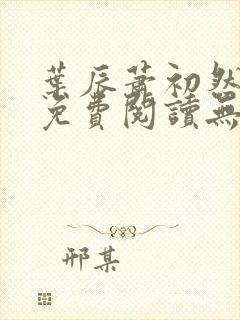 葉辰蕭初然
免費閱讀無
邢某